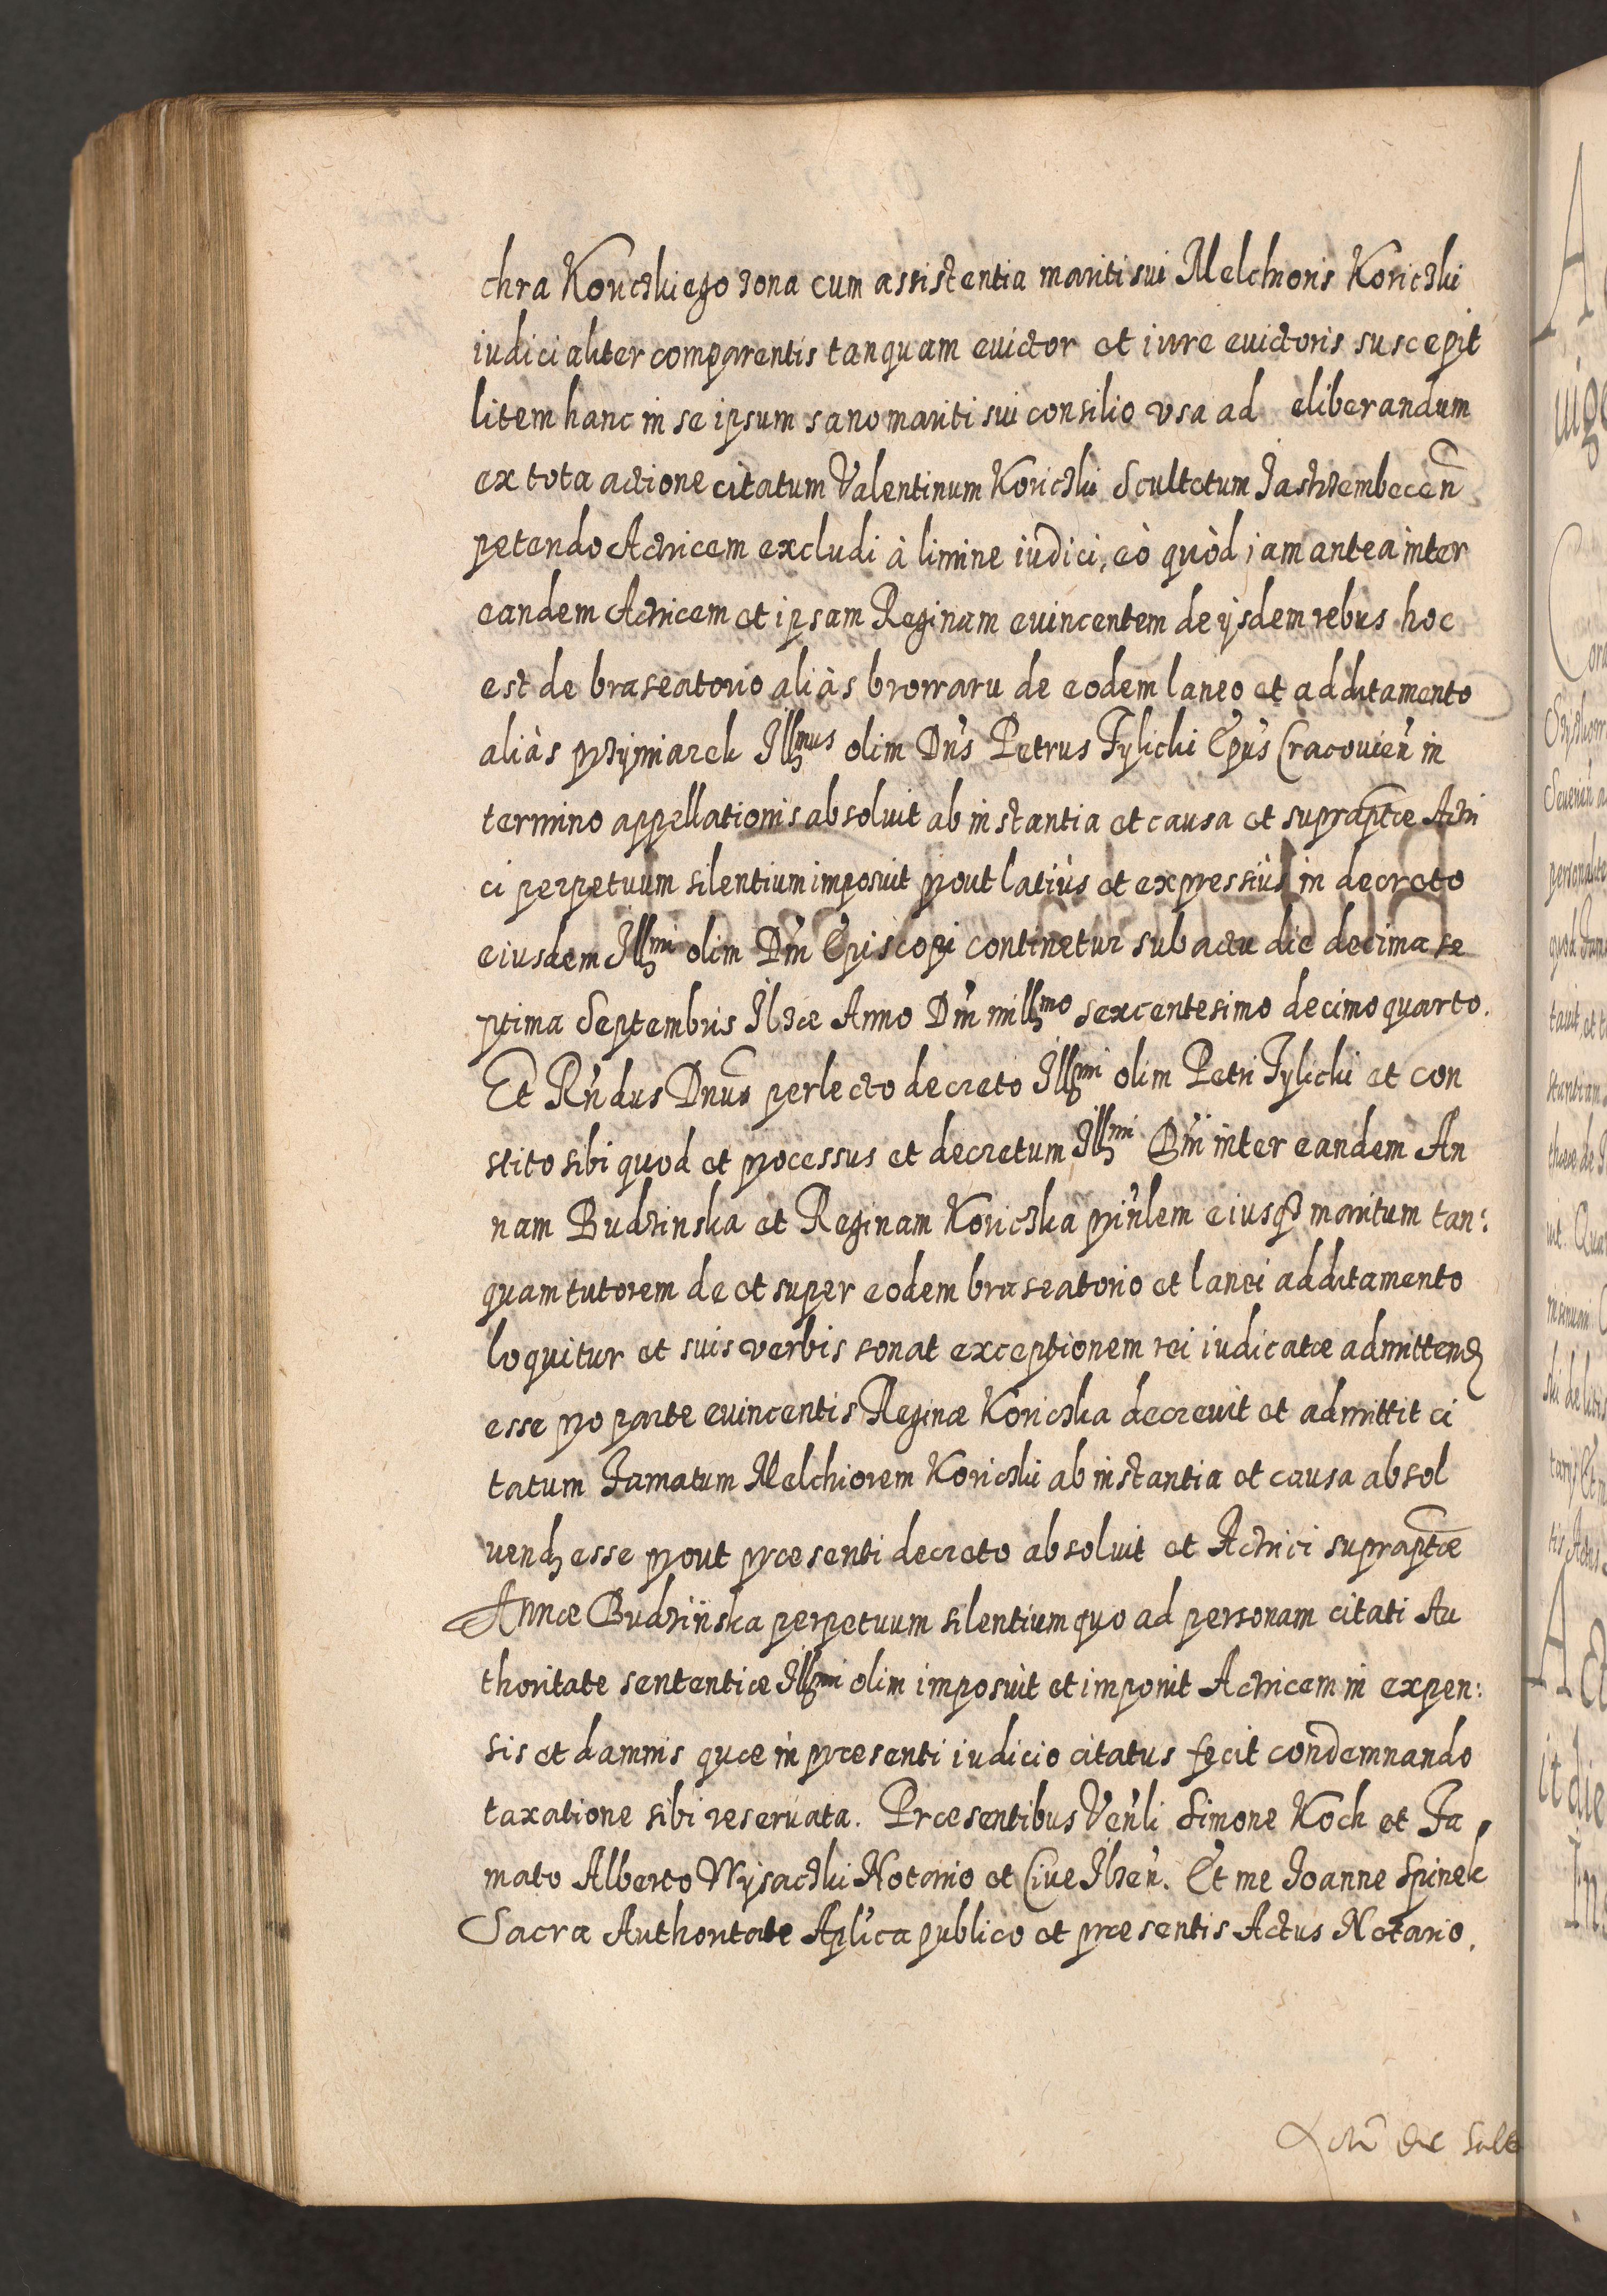 chra Koriczkiego zona cum assistentia mariti sui Melchioris Koriczki
iudicialiter comparentis tanquam evictor et iure evictoris suscepit
litem hanc in se ipsum sano mariti sui consilio vsa ad eliberandum
ex tota actione citatum Valentinum Koriczki Scultetum Jastrzembecen̄
petendo Actricem excludi à limine iudici, eò quòd jam antea inter
eandem Actricem et ipsam Reginam evincentem de ijsdem rebus hoc
est de braseatorio aliàs browaru de eodem laneo et additamento
aliàs przymiarek Jllmus olim Dn̄s Petrus Tylicki Ep̄us Cracovien̄ in
termino appellationis absoluit ab instantia et causa et suprap̄tæ Actri
ci perpetuum silentium imposuit prout latiùs et expressiùs in decreto
eiusdem Jllmi olim Dn̄i Episcopi continetur sub actu die decima se
ptima Septembris Jlzæ Anno Dn̄i millmo sexcentesimo decimo quarto.
Et Rn̄dus Dnus perlecto decreto Jllmi olim Petri Tylicki et con
stito sibi quod et processus et decretum Jllmi Dn̄i inter eandem An
nam Budzinska et Reginam Koriczka prin̄lem eiusq3 maritum tan:
quam tutorem de et super eodem braseatorio et lanei additamento
loquitur et suis verbis sonat exceptionem rei iudicatæ admittend
esse pro parte evincentis Reginæ Koriczka decrevit et admittit ci
tatum Famatum Melchiorem Koriczki ab instantia et causa absol
uend esse prout præsenti decreto absoluit et Actrici suprap̄tæ
Annæ Budzinska perpetuum silentium quo ad personam citati Au
thoritate sententiæ Jllmi olim imposuit et imponit Actricem in expen:
sis et damnis quæ in præsenti iudicio citatus fecit condemnando
taxatione sibi reseruata. Præsentibus Ven̄li Simone Koch et Fa
mato Alberto Wysaczki Notario et Ciue Jlzen̄. Et me Joanne Spinek
Sacra Authoritate Apl̄ica publico et præsentis Actus Notario.